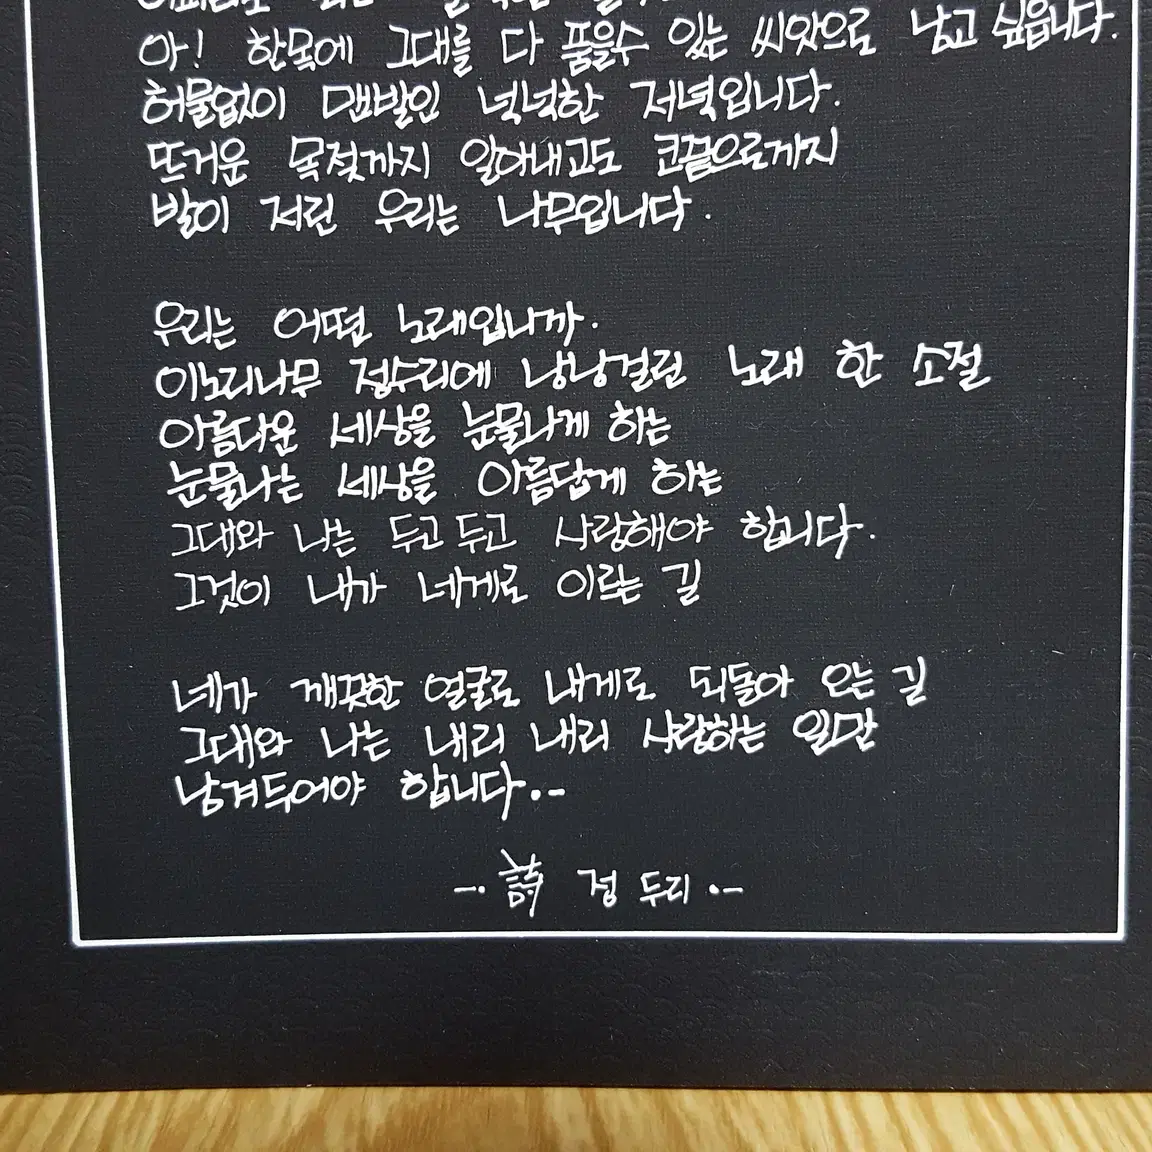 아! 한몫에 그대를 다 품을수 있는 씨앗으로 남고 싶읍니다.
허물없이 맨발인 넉넉한 저녁입니다.
뜨거운 목젖까지 알아내고도 코끝으로까지
발이 저린 우리는 나무입니다.
우리는 어떤 노래입니까.
이노리나무 정수리에 낭낭걸린 노래 한 소절
아름다운 세상을 눈물나게 하는
눈물나는 세상을 아름답게 하는
그대와 나는 두고두고 사랑해야 합니다.
그것이 내가 네게로 이르는 길
네가 깨끗한 얼굴로 내게로 되돌아 오는 길
그대와 나는 내리 내리 사랑하는 일만
남겨두어야 합니다..-
-· 詩 정 두리 ·-